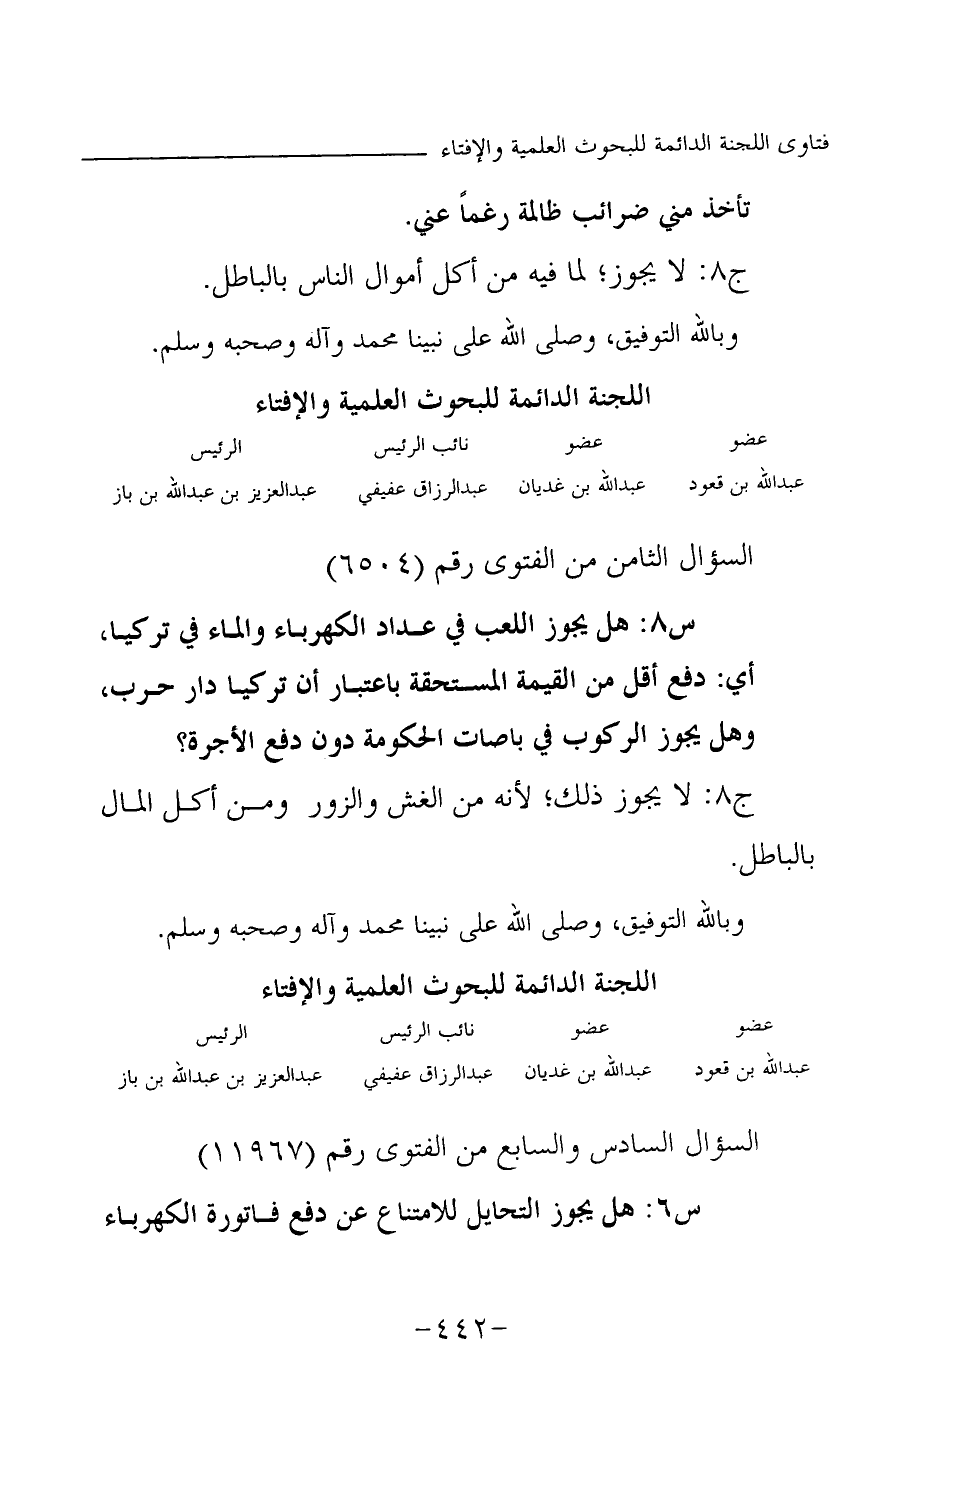 فتاوى اللجنة الدائمة للبحوث العلمية والإفتاء
تأخذ مني ضرائب ظالمة رغماً عني.
ج٨: لا يجوز؛ لما فيه من أكل أموال الناس بالباطل.
وبالله التوفيق، وصلى الله على نبينا محمد وآله وصحبه وسلم.
اللجنة الدائمة للبحوث العلمية والإفتاء
عضو عضو نائب الرئيس الرئيس
عبدالله بن قعود عبدالله بن غديان عبدالرزاق عفيفي عبدالعزيز بن عبدالله بن باز
السؤال الثامن من الفتوى رقم (٦٥٠٤)
س٨: هل يجوز اللعب في عداد الكهرباء والماء في تركيا،
أي: دفع أقل من القيمة المستحقة باعتبار أن تركيا دار حرب،
وهل يجوز الركوب في باصات الحكومة دون دفع الأجرة؟
ج٨: لا يجوز ذلك؛ لأنه من الغش والزور ومن أكل المال
بالباطل.
وبالله التوفيق، وصلى الله على نبينا محمد وآله وصحبه وسلم.
اللجنة الدائمة للبحوث العلمية والإفتاء
عضو عضو نائب الرئيس الرئيس
عبدالله بن قعود عبدالله بن غديان عبدالرزاق عفيفي عبدالعزيز بن عبدالله بن باز
السؤال السادس والسابع من الفتوى رقم (١١٩٦٧)
س٦: هل يجوز التحايل للامتناع عن دفع فاتورة الكهرباء
-٤٤٢-